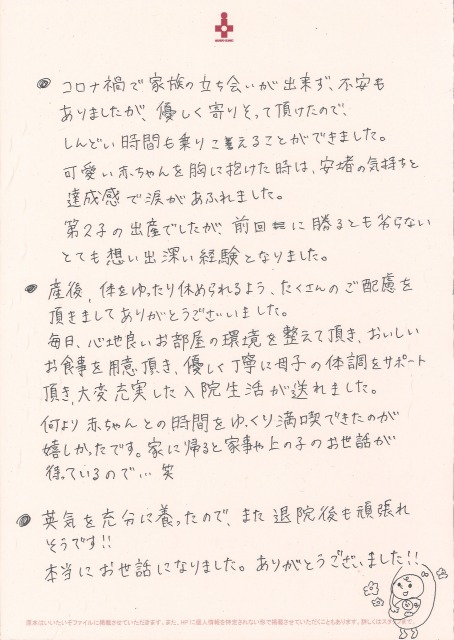 コロナ禍で家族の立ち会いが出来ず、不安も
ありましたが、優しく寄りそって頂けたので、
しんどい時間も乗りこえることができました。
可愛い赤ちゃんを胸に抱けた時は、安堵の気持ちと
達成感で涙があふれました。
第2子の出産でしたが、前回に勝るとも劣らない
とても想い出深い経験となりました。
産後、体をゆったり休められるよう、たくさんのご配慮を
頂きましてありがとうございました。
毎日、心地良いお部屋の環境を整えて頂き、おいしい
お食事を用意頂き、優しく丁寧に母子の体調をサポート
頂き、大変充実した入院生活が送れました。
何より赤ちゃんとの時間をゆっくり満喫できたのが
嬉しかったです。家に帰ると家事や上の子のお世話が
待っているので… 笑
英気を充分に養ったので、また退院後も頑張れ
そうです!!
本当にお世話になりました。ありがとうございました!!
原本はいいたいぞファイルに掲載させていただきます。また、HPに個人情報を特定されない形で掲載させていただくこともあります。詳しくはスタッフまで。